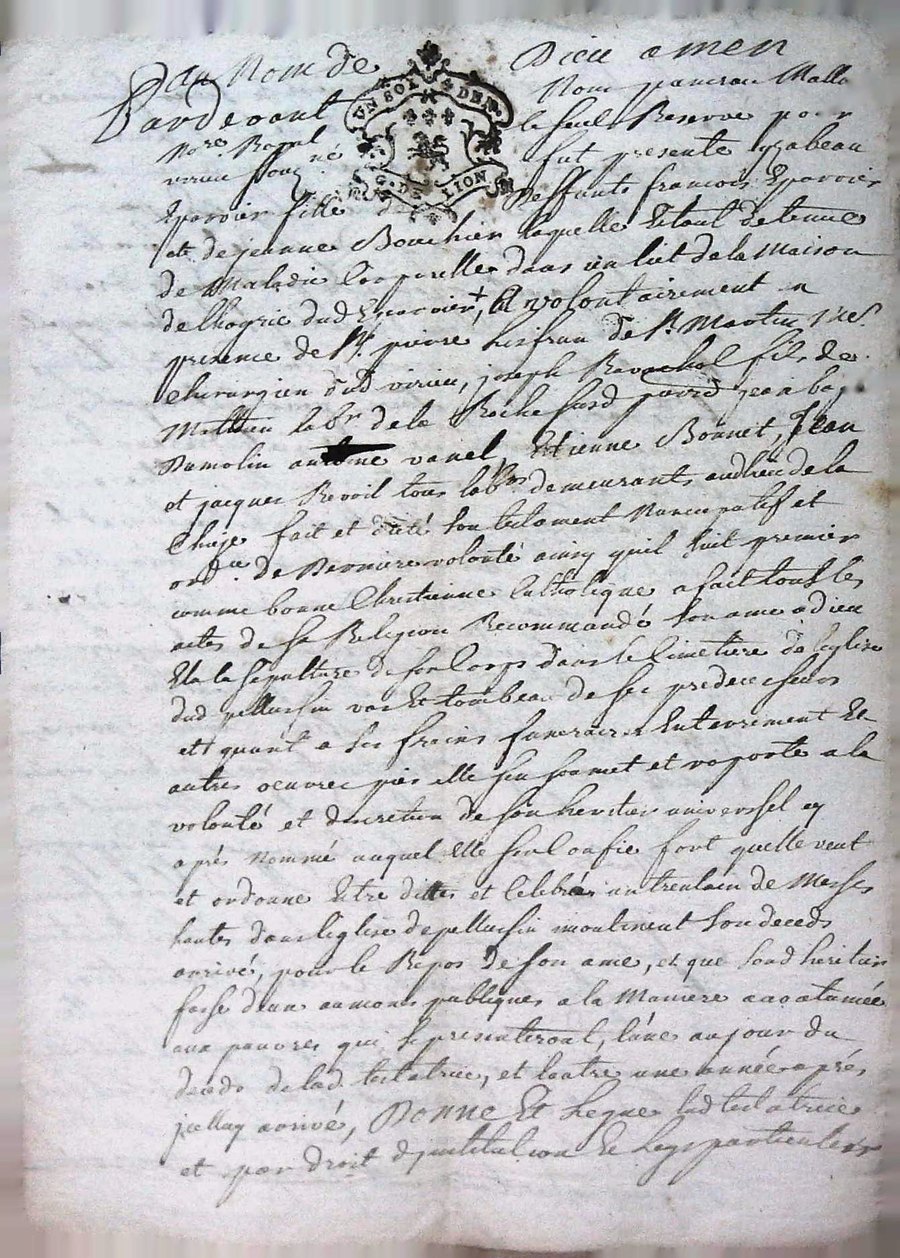 Au Nom de Dieu amen
UN SOL 4 DEN
G. DE LION
Pardevant Nous
Nore. Royal le seul Reserve pour
virieu fut presente yzabeau
Eparvier fille deffunts francois Eparvier
et de jeanne Bouchier laquelle Etant detenue
de Maladie Corporelle dans un lict de la Maison
dud Eparvier, a volontairement en
presence de Sr. pierre de St. Martin
Chirurgien dud virieu, joseph fils de
Mathieu labr de la
Dumolin antoine vanel, Etienne Bonnet, Jean
et jacques Revoil tous labrs demeurants audlieu de la
Chaze fait et dicté son testament Nuncupatif et
ordre de Derniere volonté ainsy quil suit premier
comme bonne Chretienne Catholique a fait tous les
actes de sa Religion Recommandé son ame a dieu
Ela la sepulture de son Corps dans le Cimetiere de leglise
dud pellussin vas Et tombeau de ses predecesseurs
et quant a ses fraix funeraires Enterrement Et
autres oeuvres pies elle sen soumet et raporte a la
volonté et discretion de son heritier universel cy
aprés nommé auquel Elle sen Confie fort quelle veut
et ordonne Estre dittes et Celebrées un trentain de Messes
hautes dans leglise de pellussin son deceds
arrivé, pour le Repos de son ame, et que sond heritier
fasse deux aumones publiques a la Maniere accoutumée
aux pauvres qui se presenteront, lune au jour du
deceds de lad testatrice, et lautre une année aprés
jcelluy arrivé, Donne Et Legue lad testatrice
et par droit djnstitution Et Legs particuliers